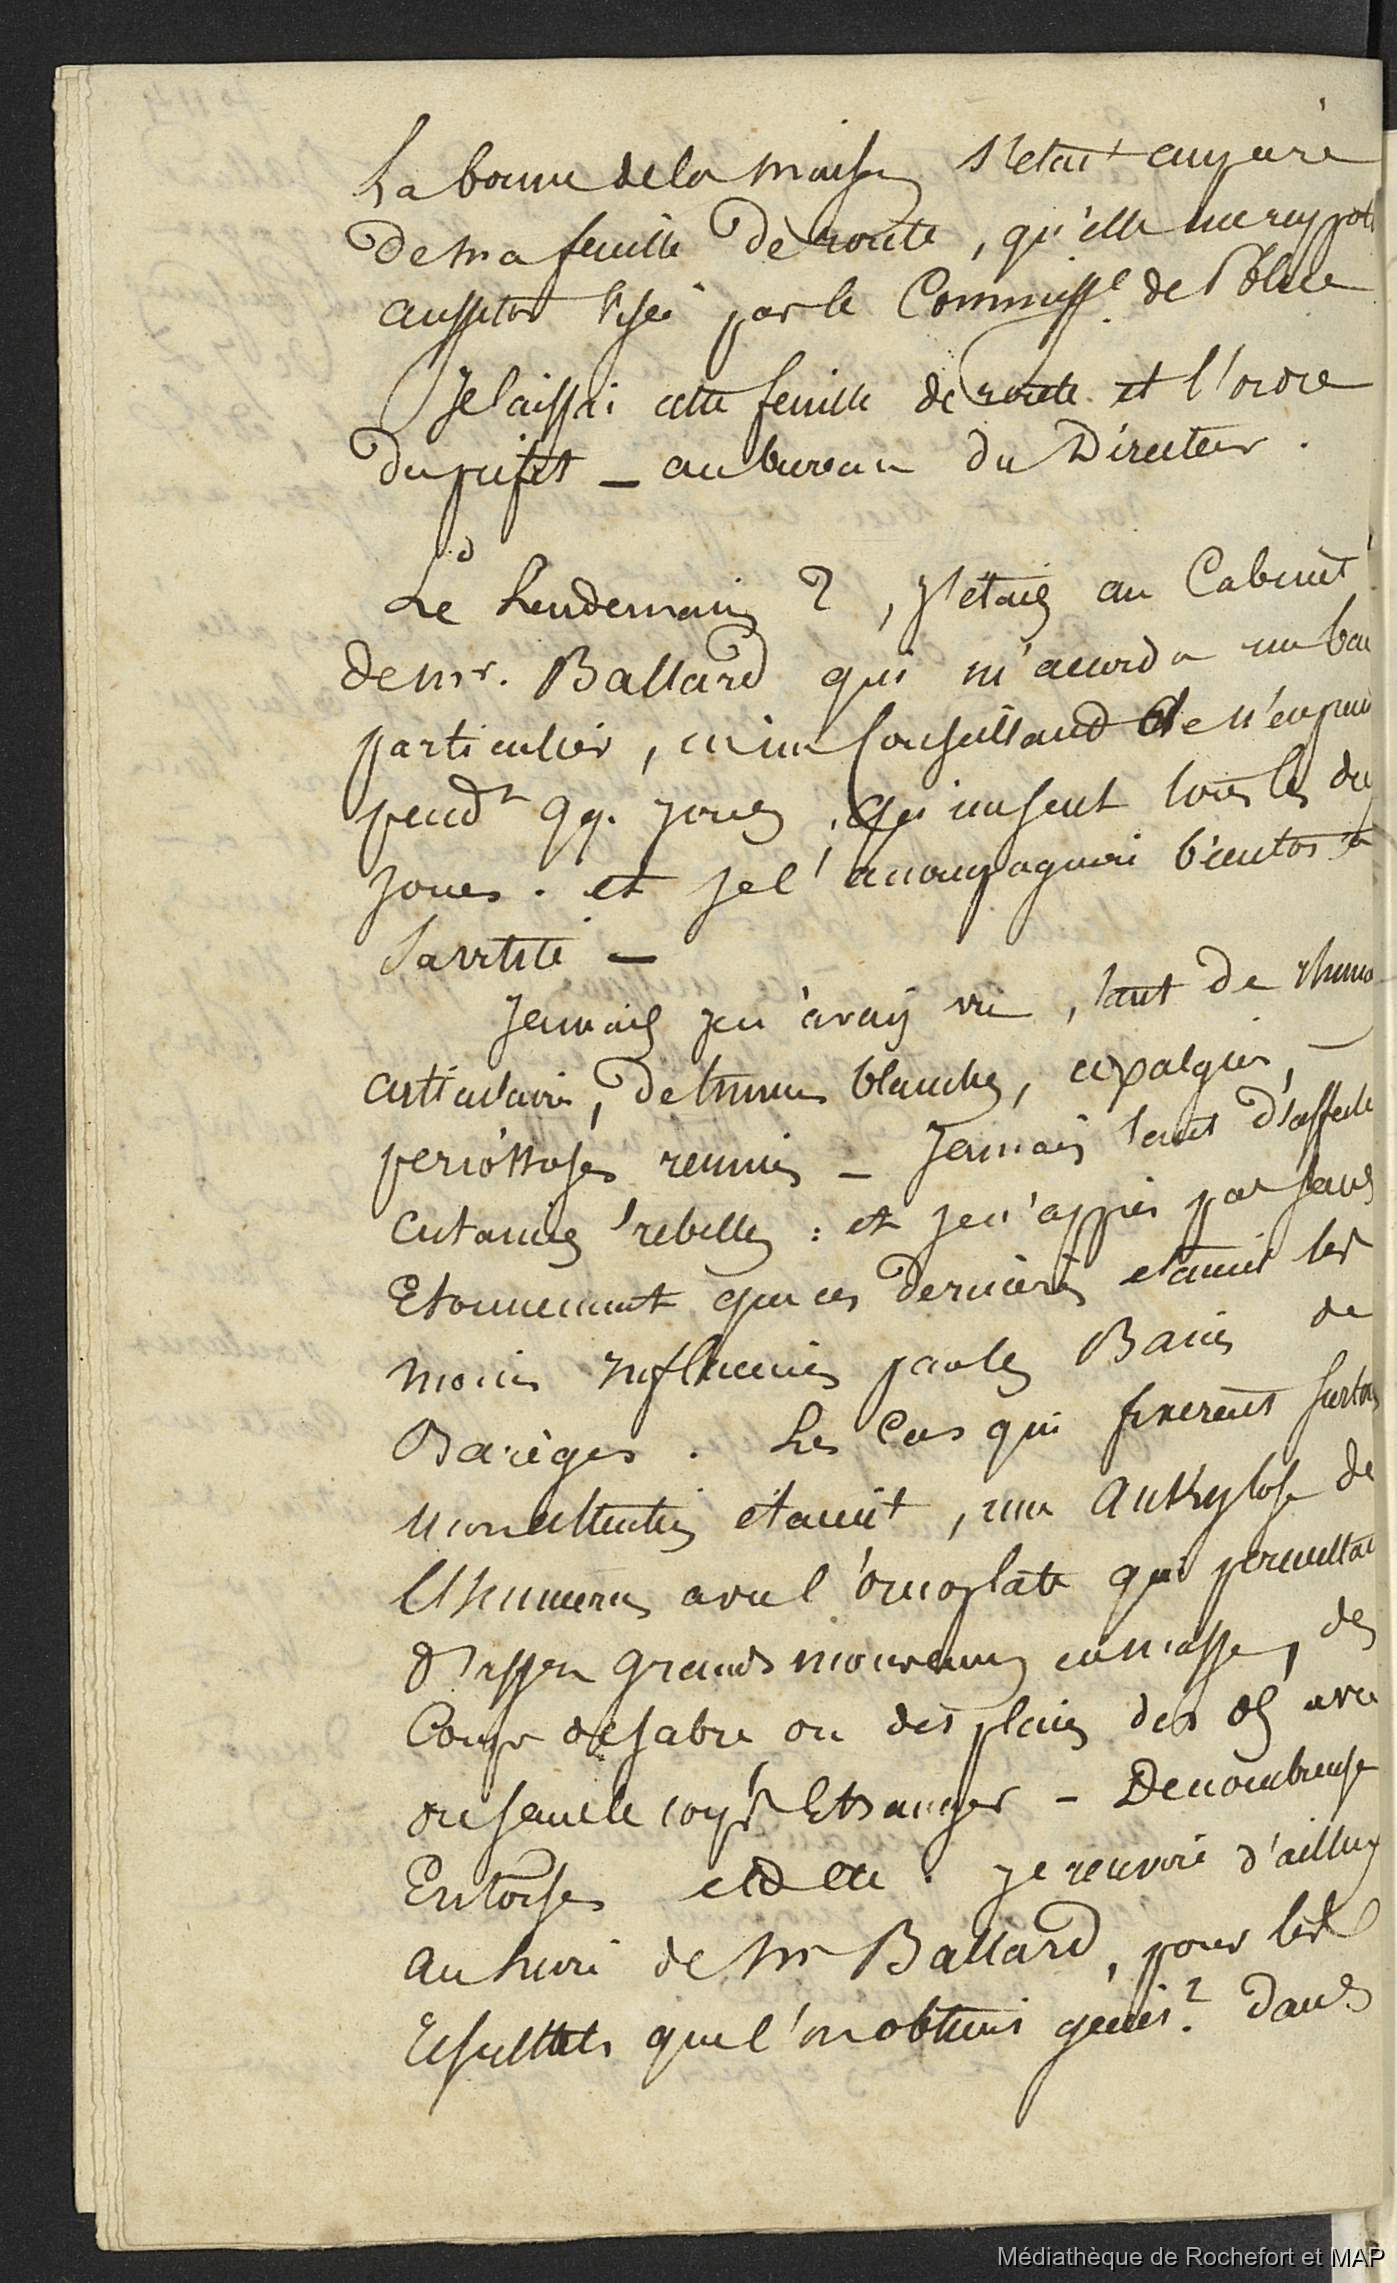 La bonne de la maison s'était emparé
de ma feuille de route, qu'elle me rapporta
aussitot visée par le Commiss.e de Police
Je laissai cette feuille de route et l'ordre
du préfet — au bureau du Directeur.
Le Lendemain 2, j'étais au Cabinet
de mr. Ballard qui m'accorda un bain
particulier, en me Conseillant de n'en prendre
pend.t qq. jours, que
jours. et je l'accompagnai bientot à
sa visite —
Jamais je n'avais vu, tant de rhum.
articulaires, de tumeurs blanches, coxalgies,
periostoses reunies — Jamais tant d'affect.
Cutanées rebelles : et je n'appris pas sans
Etonnement que ces dernieres etaient les
moins influencées par les Bains de
Barèges. Les Cas qui fixerent surtout
mon attention étaient, une Ankylose de
l'humerus avec l'omoplate qui permettait
d'assez grands mouvemens en masse, des
Coups de sabre ou des plaies des os avec
ou sans le corps Etranger — De nombreuses
Entorses etc etc. je renvoie d'ailleurs
au livre de Mr Ballard, pour les
resultats que l'on obtient dans